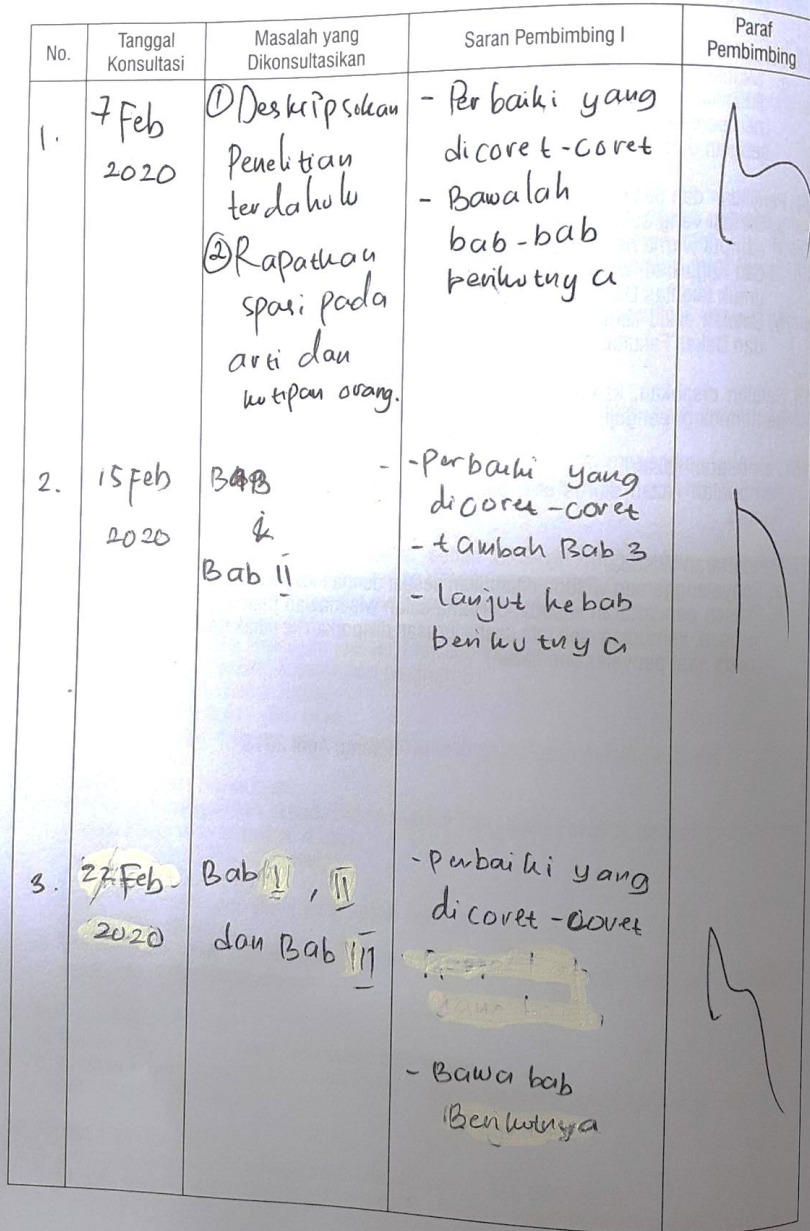 No.
Tanggal
Konsultasi
Masalah yang
Dikonsultasikan
Saran Pembimbing I
Paraf
Pembimbing
1.
7 Feb
2020
① Deskripsikan
Penelitian
terdahulu
② Rapatkan
spasi pada
arti dan
kutipan orang.
- Perbaiki yang
dicoret-coret
- Bawalah
bab-bab
berikutnya
2.
15 Feb
2020
BAB
&
Bab II
- Perbaiki yang
dicoret-coret
- tambah Bab 3
- lanjut kebab
berikutnya
3.
22 Feb
2020
Bab I, II
dan Bab III
- Perbaiki yang
dicoret-coret
- Bawa bab
Berikutnya